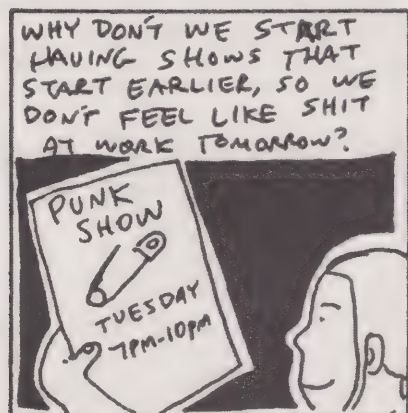 WHY DON'T WE START
HAVING SHOWS THAT
START EARLIER, SO WE
DON'T FEEL LIKE SHIT
AT WORK TOMORROW?
PUNK
SHOW
TUESDAY
7PM-10PM